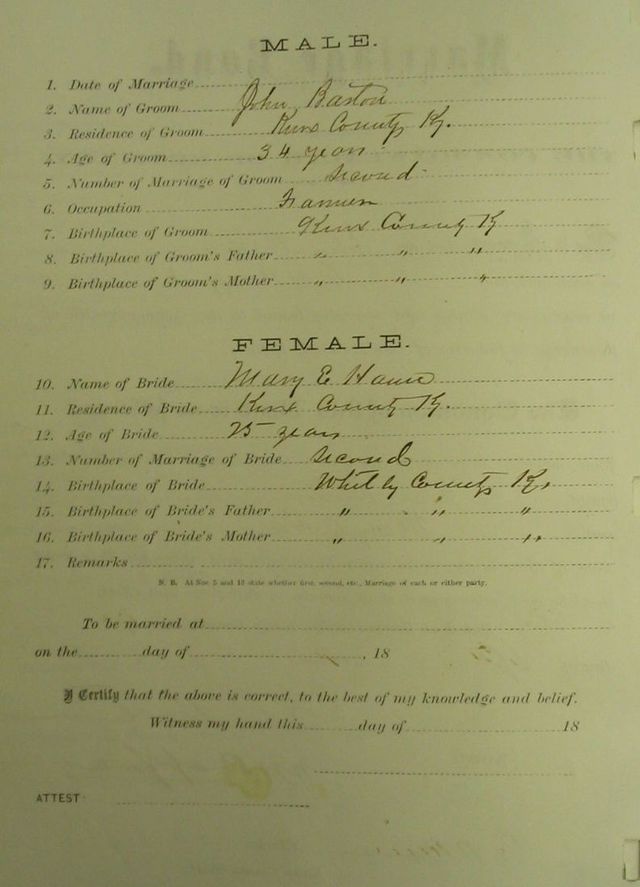 MALE.
1. Date of Marriage
2. Name of Groom John Barton
3. Residence of Groom Knox County Ky.
4. Age of Groom 34 years
5. Number of Marriage of Groom Second
6. Occupation Farmer
7. Birthplace of Groom Knox County K
8. Birthplace of Groom's Father " " "
9. Birthplace of Groom's Mother " " "
FEMALE.
10. Name of Bride Mary E
11. Residence of Bride Knox County Ky.
12. Age of Bride 25 years
13. Number of Marriage of Bride Second
14. Birthplace of Bride Whitley County Ky,
15. Birthplace of Bride's Father " " "
16. Birthplace of Bride's Mother " " "
17. Remarks
N. B. At Nos 5 and 13 state whether first, second, etc., Marriage of each or either party.
To be married at
on the day of , 18
I Certify that the above is correct, to the best of my knowledge and belief.
Witness my hand this day of 18
ATTEST